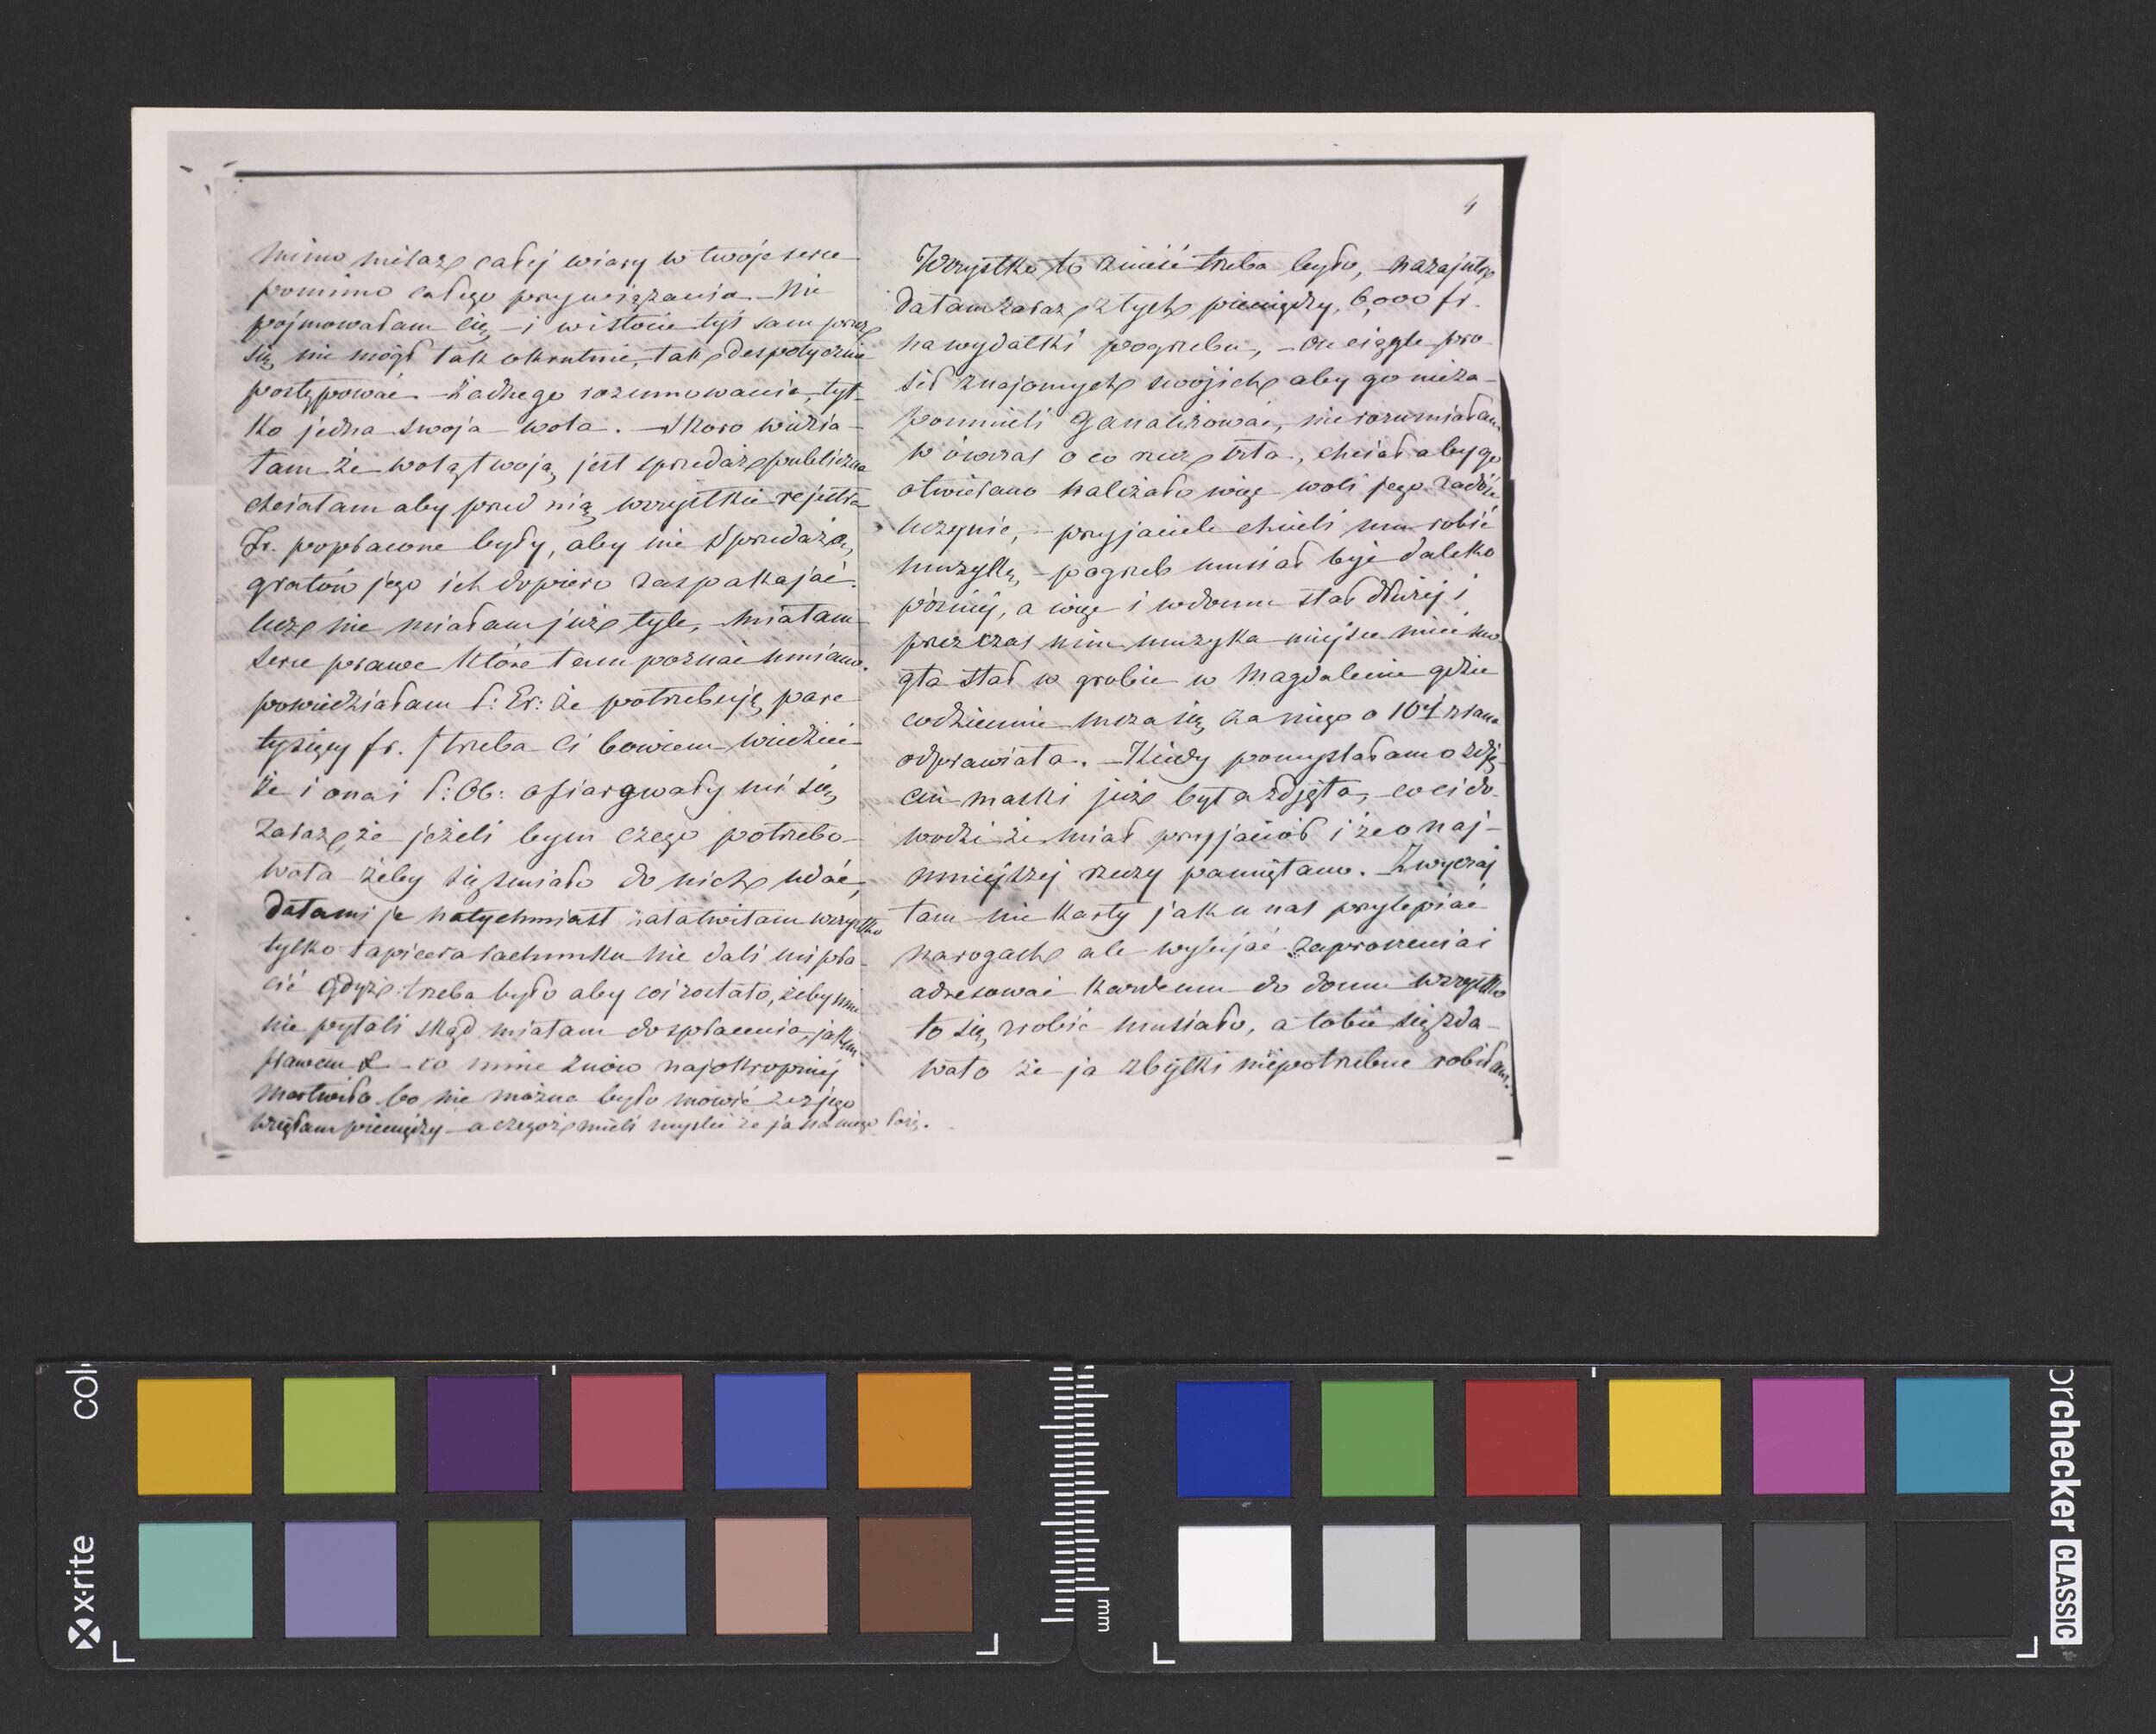 mimo miłaż całej wiary w twóje serce
pomimo całego przywiązania. Nie
pojmowałam Cię, – i w istocie tyś sam przez
się, nie mógł tak okrutnie, tak despotycznie
postępować – żadnego rozumowania, tyl-
ko jedna swoja wola. – Skoro widzia-
łam że wolą twoją, jest sprzedaż publiczna
chciałam aby przed nią, wszystkie rejestra
Fr. popłacone były, aby nie Sprzedażą,
gratów jego ich dopiero zaspakajać.
lecz nie miałam już tyle, miałam
serce prawe które tam poznać umiano.
powiedziałam S: Er: że potrzebuję, pare
tysięcy fr. / trzeba Ci bowiem wiedzieć
że i ona i S: Ob: ofiarowały mi się,
zaraz, że jeżeli bym czego potrzebo-
wała żeby się śmiało do nich udać,
dała mi je natychmiast załatwiłam wszystko
tylko tapicera rachunku nie dali mi pła-
cić gdyż trzeba było aby coś zostało, żeby mnie
nie pytali skąd miałam do spłacenia, jakiem
prawem – co mnie znów najokropniej
Martwiło bo nie można było mówić że z jego
wzięłam pieniędzy – a czegoż mieli myśleć że ja na niego łożę.
4
Wszystko to znieść trzeba było, – nazajutrz
dałam zaraz z tych pieniędzy, 6,000 fr.
na wydatki pogrzebu, – on ciągle pro-
sił znajomych swojich aby go nieza-
pomnieli Ganaliżować, nie rozumiałam
w ówczas o co rzecz szła, chciał aby go
otwierano należało więc woli jego zadość
uczynić, – przyjaciele chcieli mu robić
muzykę, – pogrzeb musiał być daleko
później, a więc i w domu stał dłużej i
przez czas nim muzyka miejsce mieć mo-
gła stał w grobie w Magdalenie gdzie
codziennie msza się, za niego o 10½ z rana
odprawiała. – Kiedy pomyślałam o zdję-
ciu maski już była zdjęta, – co ci do-
wodzi że miał przyjaciół i że o naj-
mniejszej rzeczy pamiętano. Zwyczaj
tam nie karty jak u nas przylepiać
na rogach ale wysyłać zaproszenia i
adresować każdemu do domu wszystko
to się, zrobić musiało, a tobie się zda-
wało że ja zbytki niepotrzebne robiłam.
x-rite
colorchecker CLASSIC
mm